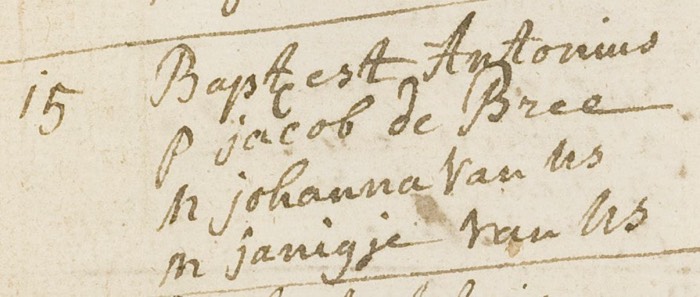 15 Bapt est Antonius
p jacob de Bree
m johanna Van Us
m janigje Van Us